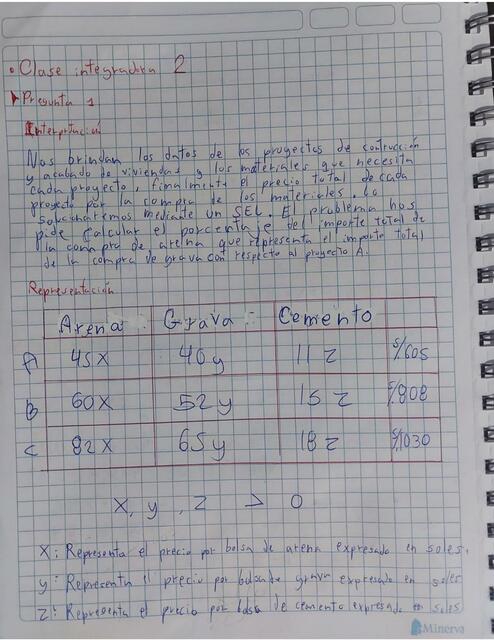 • Clase integradora 2
Pregunta 1
Interpretación
Nos brindan los datos de los proyectos de contrucción
y acabado de viviendas y los materiales que necesita
cada proyecto, finalmente el precio total de cada
proyecto por la compra de los materiales. Lo
solucionaremos mediante un SEL. El problema nos
pide calcular el porcentaje del importe total de
la compra de arena que representa el importe total
de la compra de grava con respecto al proyecto A.
Representación
Arena Grava Cemento
A 45x 40y 11z S/605
B 60x 52y 15z S/808
C 82x 65y 18z S/1030
x, y, z > 0
x: Representa el precio por bolsa de arena expresado en soles.
y: Representa el precio por bolsa de grava expresado en soles
z: Representa el precio por bolsa de cemento expresado en soles
Minerva